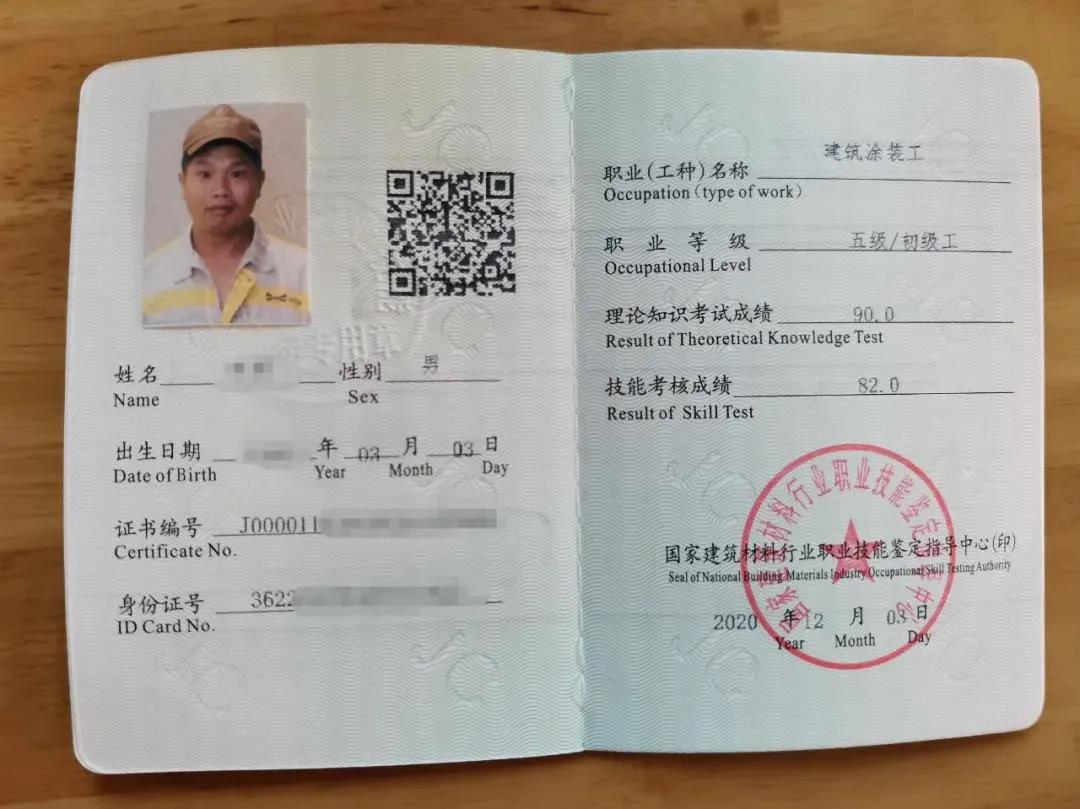 姓名 性别 男
Name Sex
出生日期 年 03 月 03 日
Date of Birth Year Month Day
证书编号 J000011
Certificate No.
身份证号 3622
ID Card No.
建筑涂装工
职业(工种)名称
Occupation (type of work)
职业等级 五级/初级工
Occupational Level
理论知识考试成绩 90.0
Result of Theoretical Knowledge Test
技能考核成绩 82.0
Result of Skill Test
国家建筑材料行业职业技能鉴定指导中心
国家建筑材料行业职业技能鉴定指导中心(印)
Seal of National Building Materials Industry Occupational Skill Testing Authority
2020 年 12 月 03 日
Year Month Day